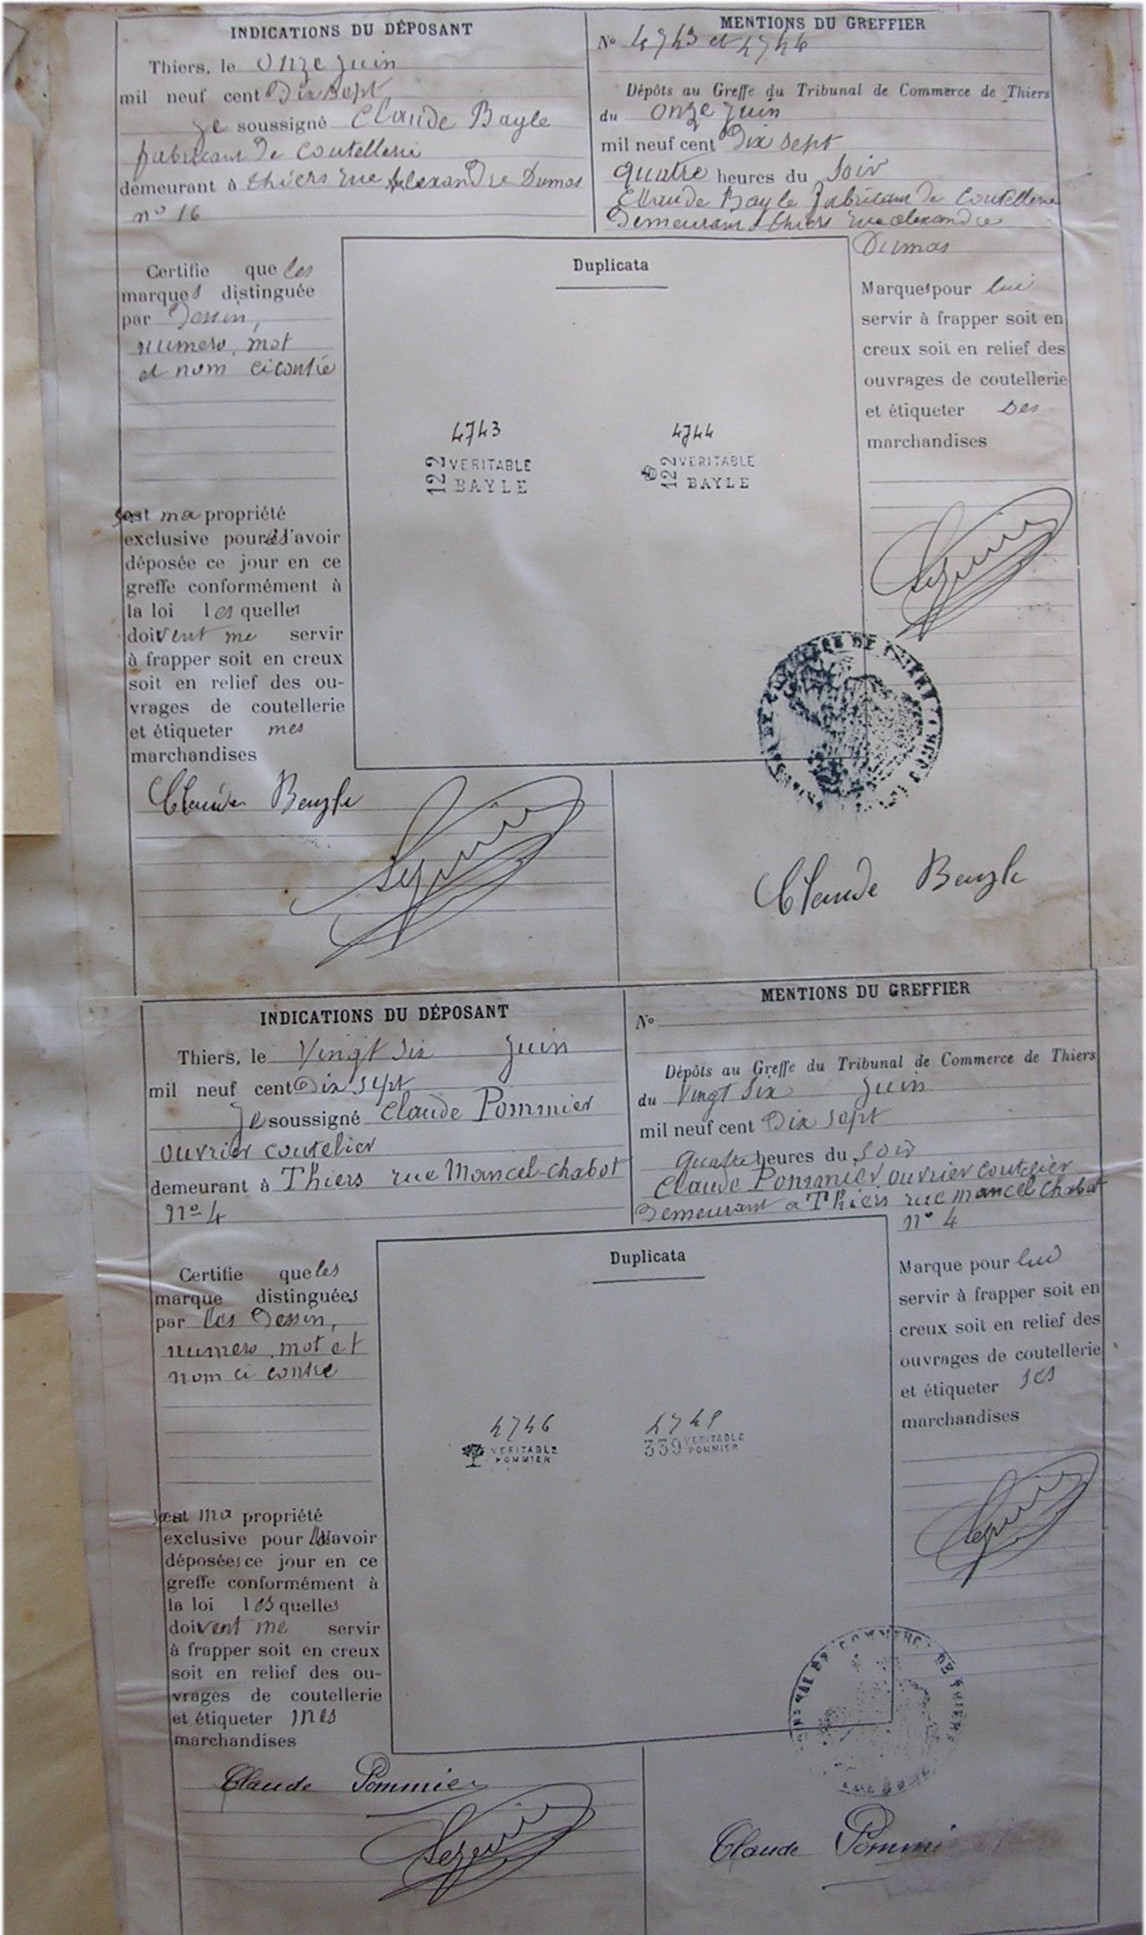 INDICATIONS DU DÉPOSANT
Thiers, le onze juin
mil neuf cent Dix sept
Je soussigné Claude Bayle
fabricant de coutellerie
demeurant à thiers rue Alexandre Dumas
n° 16
MENTIONS DU GREFFIER
N° 4743 et 4744
Dépôts au Greffe du Tribunal de Commerce de Thiers
du onze juin
mil neuf cent Dix sept
quatre heures du soir
Claude Bayle fabricant de coutellerie
Demeurant à thiers rue alexandre
Dumas
Certifie que les
marques distinguée
par Dessin,
numero, mot
et nom ci contre
est ma propriété
exclusive pour les avoir
déposée ce jour en ce
greffe conformément à
la loi lesquelles
doivent me servir
à frapper soit en creux
soit en relief des ou-
vrages de coutellerie
et étiqueter mes
marchandises
Duplicata
4743
122 VERITABLE
BAYLE
4744
122 VERITABLE
BAYLE
Marques pour lui
servir à frapper soit en
creux soit en relief des
ouvrages de coutellerie
et étiqueter ses
marchandises
Claude Bayle
Claude Bayle
INDICATIONS DU DÉPOSANT
Thiers, le Vingt six juin
mil neuf cent Dix sept
Je soussigné Claude Pommier
ouvrier coutelier
demeurant à Thiers rue Mancel-Chabot
n° 4
MENTIONS DU GREFFIER
N°
Dépôts au Greffe du Tribunal de Commerce de Thiers
du Vingt six juin
mil neuf cent Dix sept
quatre heures du soir
Claude Pommier ouvrier coutelier
Demeurant a Thiers rue mancel Chabot
n° 4
Certifie que les
marque distinguées
par les Dessin,
numero, mot et
nom ci contre
est ma propriété
exclusive pour les avoir
déposées ce jour en ce
greffe conformément à
la loi lesquelles
doivent me servir
à frapper soit en creux
soit en relief des ou-
vrages de coutellerie
et étiqueter mes
marchandises
Duplicata
4746
VERITABLE
POMMIER
339 VERITABLE
POMMIER
Marque pour lui
servir à frapper soit en
creux soit en relief des
ouvrages de coutellerie
et étiqueter ses
marchandises
COMMERCE DE THIERS
Claude Pommier
Claude Pommi